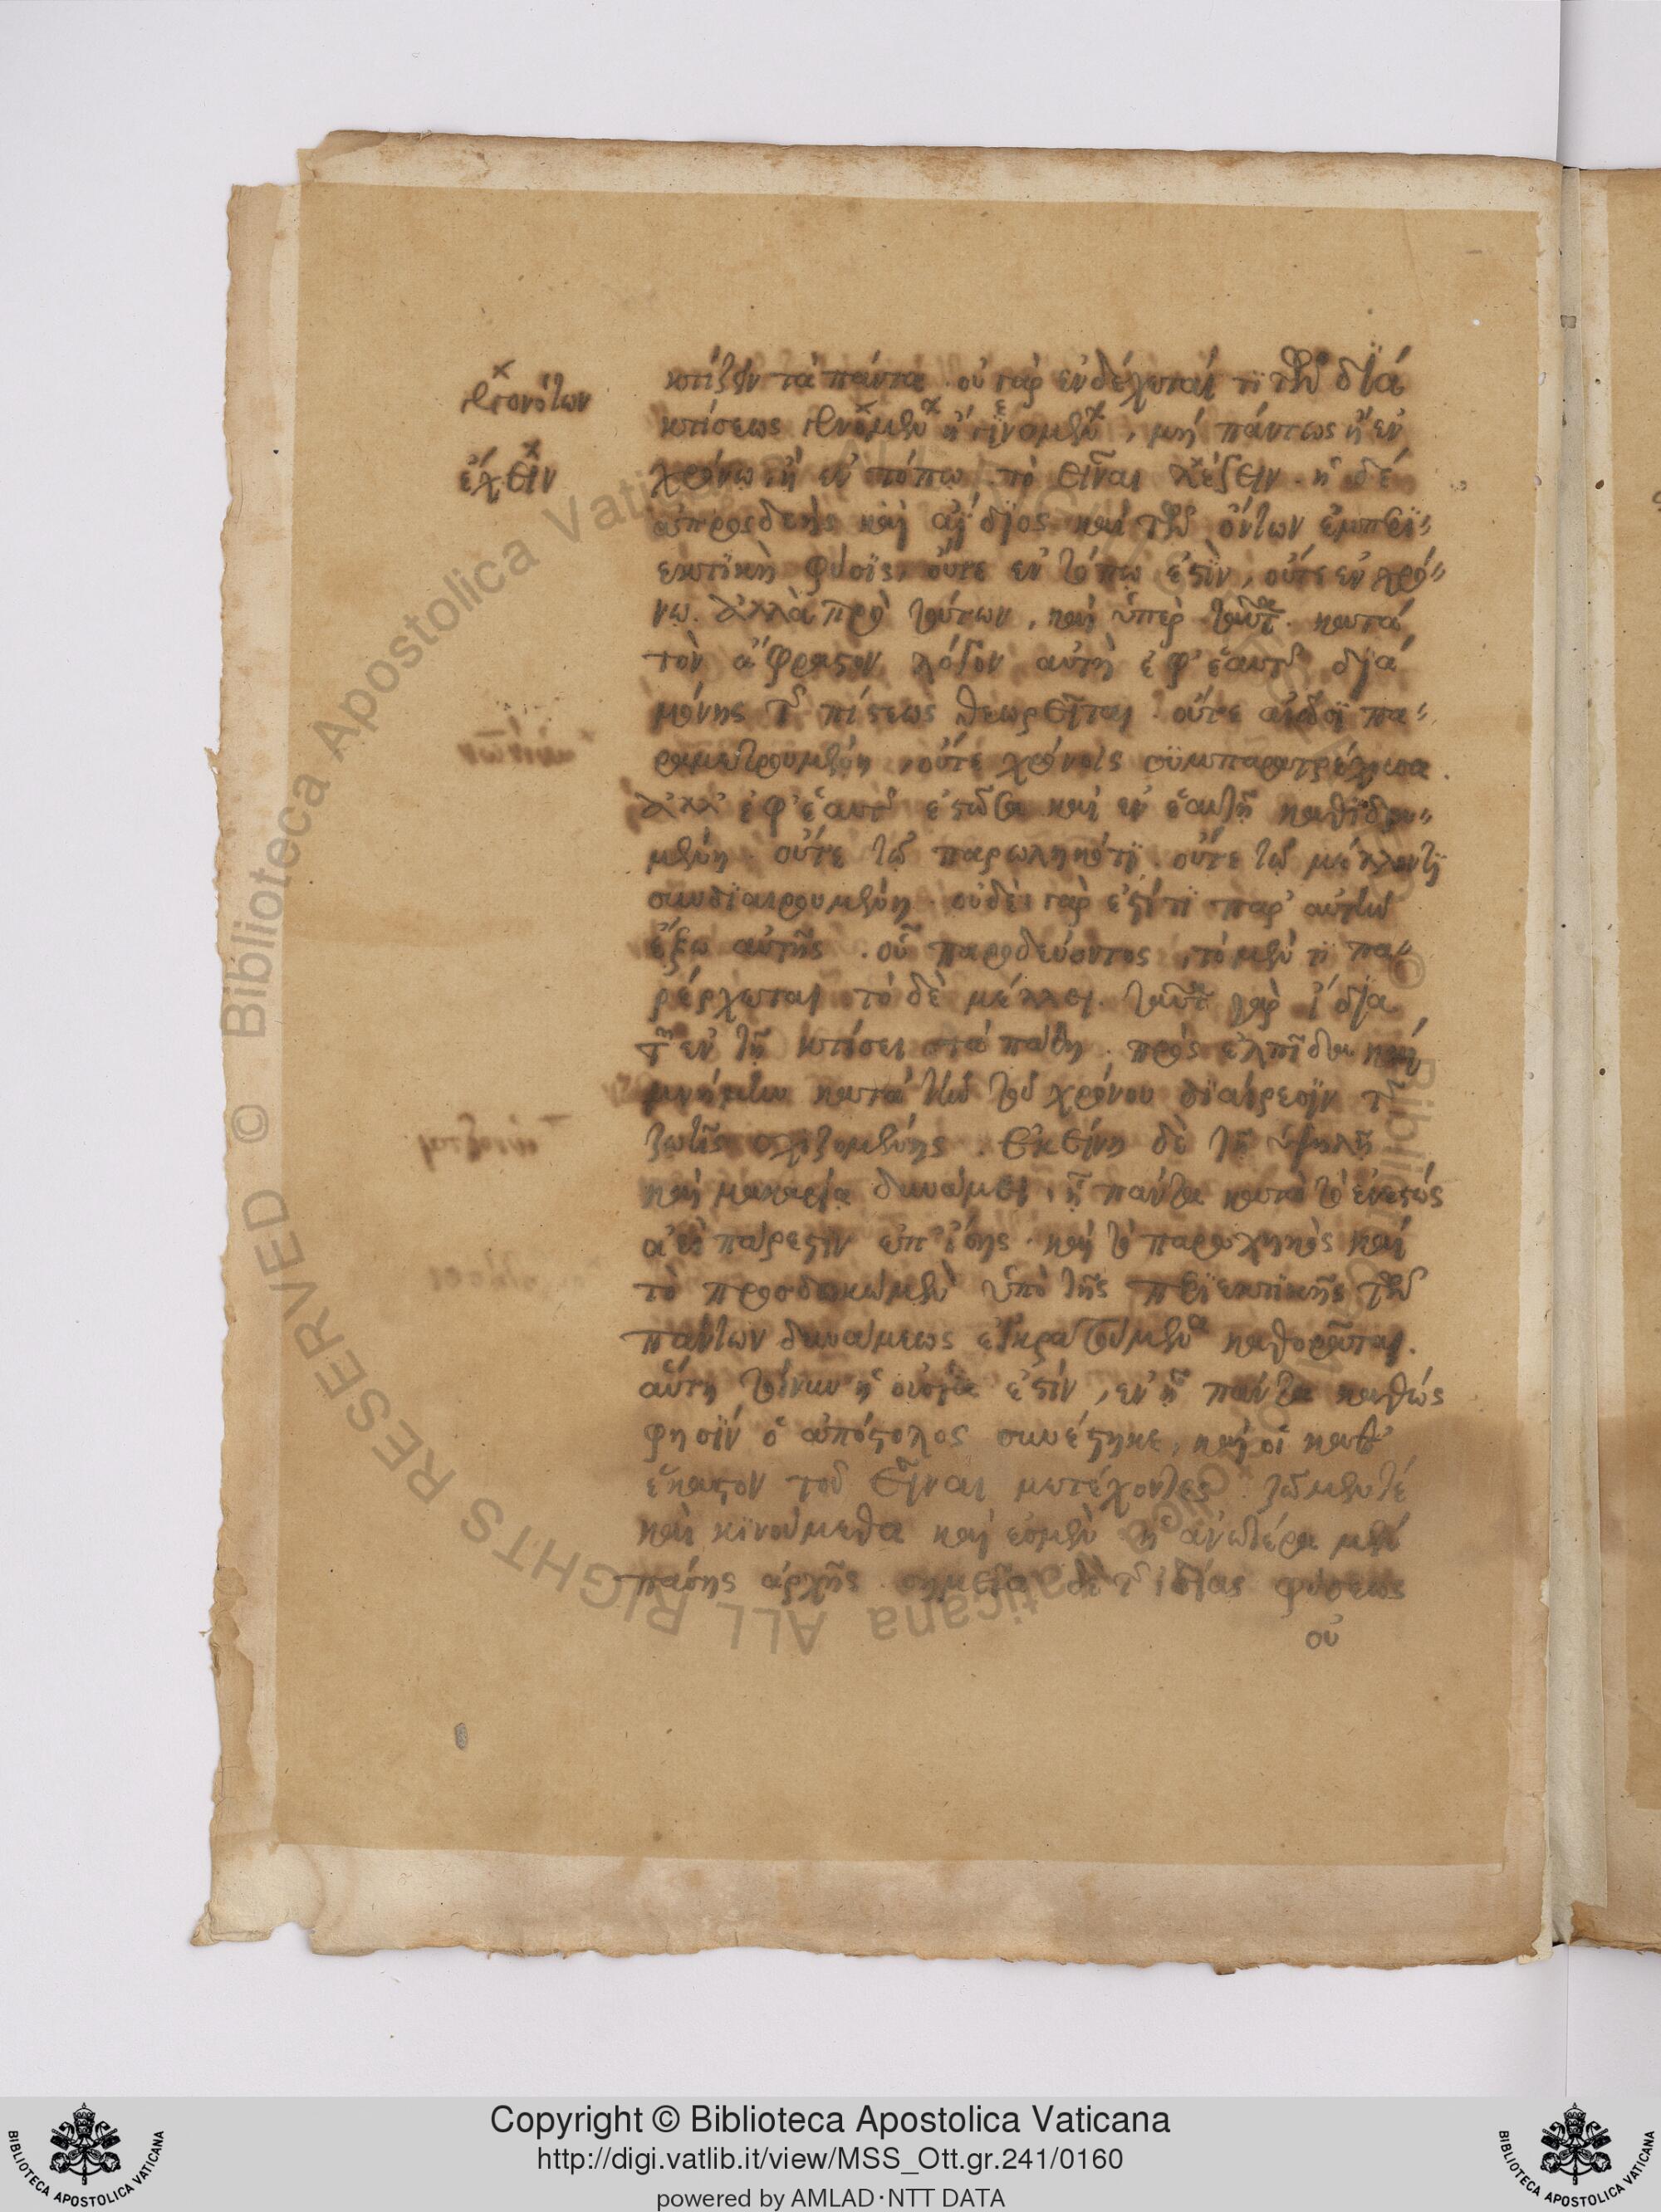 γεγονότων
ἔχειν
κτίζειν τὰ πάντα. οὐ γὰρ ἐνδέχεταί τι τῶν διὰ
κτίσεως γενομένων ἢ γινομένων, μὴ πάντως ἢ ἐν
χρόνω, ἢ ἐν τόπω τὸ εἶναι λέξειν. ἡ δὲ
ἀπροσδεὴς καὶ ἀΐδιος καὶ τῶν ὄντων ἐμπερι-
εκτικὴ φύσις, οὔτε ἐν τόπω ἐστὶν, οὔτε ἐν χρό-
νω. ἀλλὰ πρὸ τούτων, καὶ ὑπὲρ ταῦτα. κατὰ
τὸν ἄφραστον λόγον αὐτὴ ἐφ' ἑαυτῆς διὰ
μόνης τῆς πίστεως θεωρεῖται. οὔτε αἰῶσι πα-
ραμετρουμένη, οὔτε χρόνοις συμπαρατρέχουσα.
ἀλλ' ἐφ' ἑαυτῆς ἑστῶσα καὶ ἐν ἑαυτῆ καθιδρυ-
μένη. οὔτε τῶ παρωχηκότι. οὔτε τῶ μέλλοντι
συνδιαιρουμένη. οὐδὲ γὰρ ἐστί τι παρ' αὐτὴν
ἔξω αὐτῆς. οὗ παροδεύοντος, τὸ μέν τι πα-
ρέρχεται τὸ δὲ μέλλει. ταῦτα γὰρ ἴδια
τῶν ἐν τῆ κτίσει τὰ πάθη. πρὸς ἐλπίδα καὶ
μνήμην κατὰ τὴν τοῦ χρόνου διαίρεσιν τῆς
ζωῆς σχιζομένης. ἐκείνη δὲ τῆ ὑψηλῆ
καὶ μακαρία δυνάμει, ἧ πάντα κατὰ τὸ ἐνεστὼς
ἀεὶ πάρεστιν ἐπ' ἴσης. καὶ τὸ παρωχηκὸς καὶ
τὸ προσδοκώμενον ὑπὸ τῆς περιεκτικῆς τῶν
πάντων δυνάμεως ἐγκρατούμενα καθορᾶται.
αὕτη τοίνυν ἡ οὐσία ἐστίν, ἐν ἧ πάντα καθώς
φησὶν ὁ ἀπόστολος συνέστηκε, καὶ οἱ καθ'
ἕκαστον τοῦ εἶναι μετέχοντες. ζῶμέν τε
καὶ κινούμεθα καὶ ἐσμὲν ἡ ἀνωτέρα μὲν
πάσης ἀρχῆς. σημεῖα δὲ τῆς ἰδίας φύσεως
οὐ
© Biblioteca Apostolica Vaticana ALL RIGHTS RESERVED
Copyright © Biblioteca Apostolica Vaticana
http://digi.vatlib.it/view/MSS_Ott.gr.241/0160
powered by AMLAD·NTT DATA
BIBLIOTECA APOSTOLICA VATICANA
BIBLIOTECA APOSTOLICA VATICANA